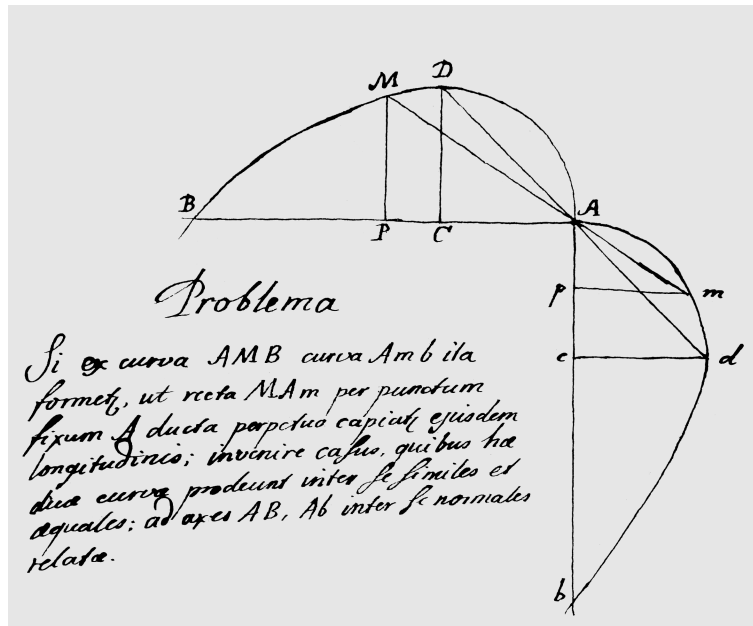 D
M
B
A
P
C
p
m
c
d
Problema
Si ex curva AMB curva Amb ita
formetꝫ, ut recta MAm per punctum
fixum A ducta perpetuo capiatꝫ ejusdem
longitudinis; invenire casus, quibus hæ
duæ curvæ prodeunt inter se similes et
æquales; ad axes AB, Ab inter se normales
relatæ.
b